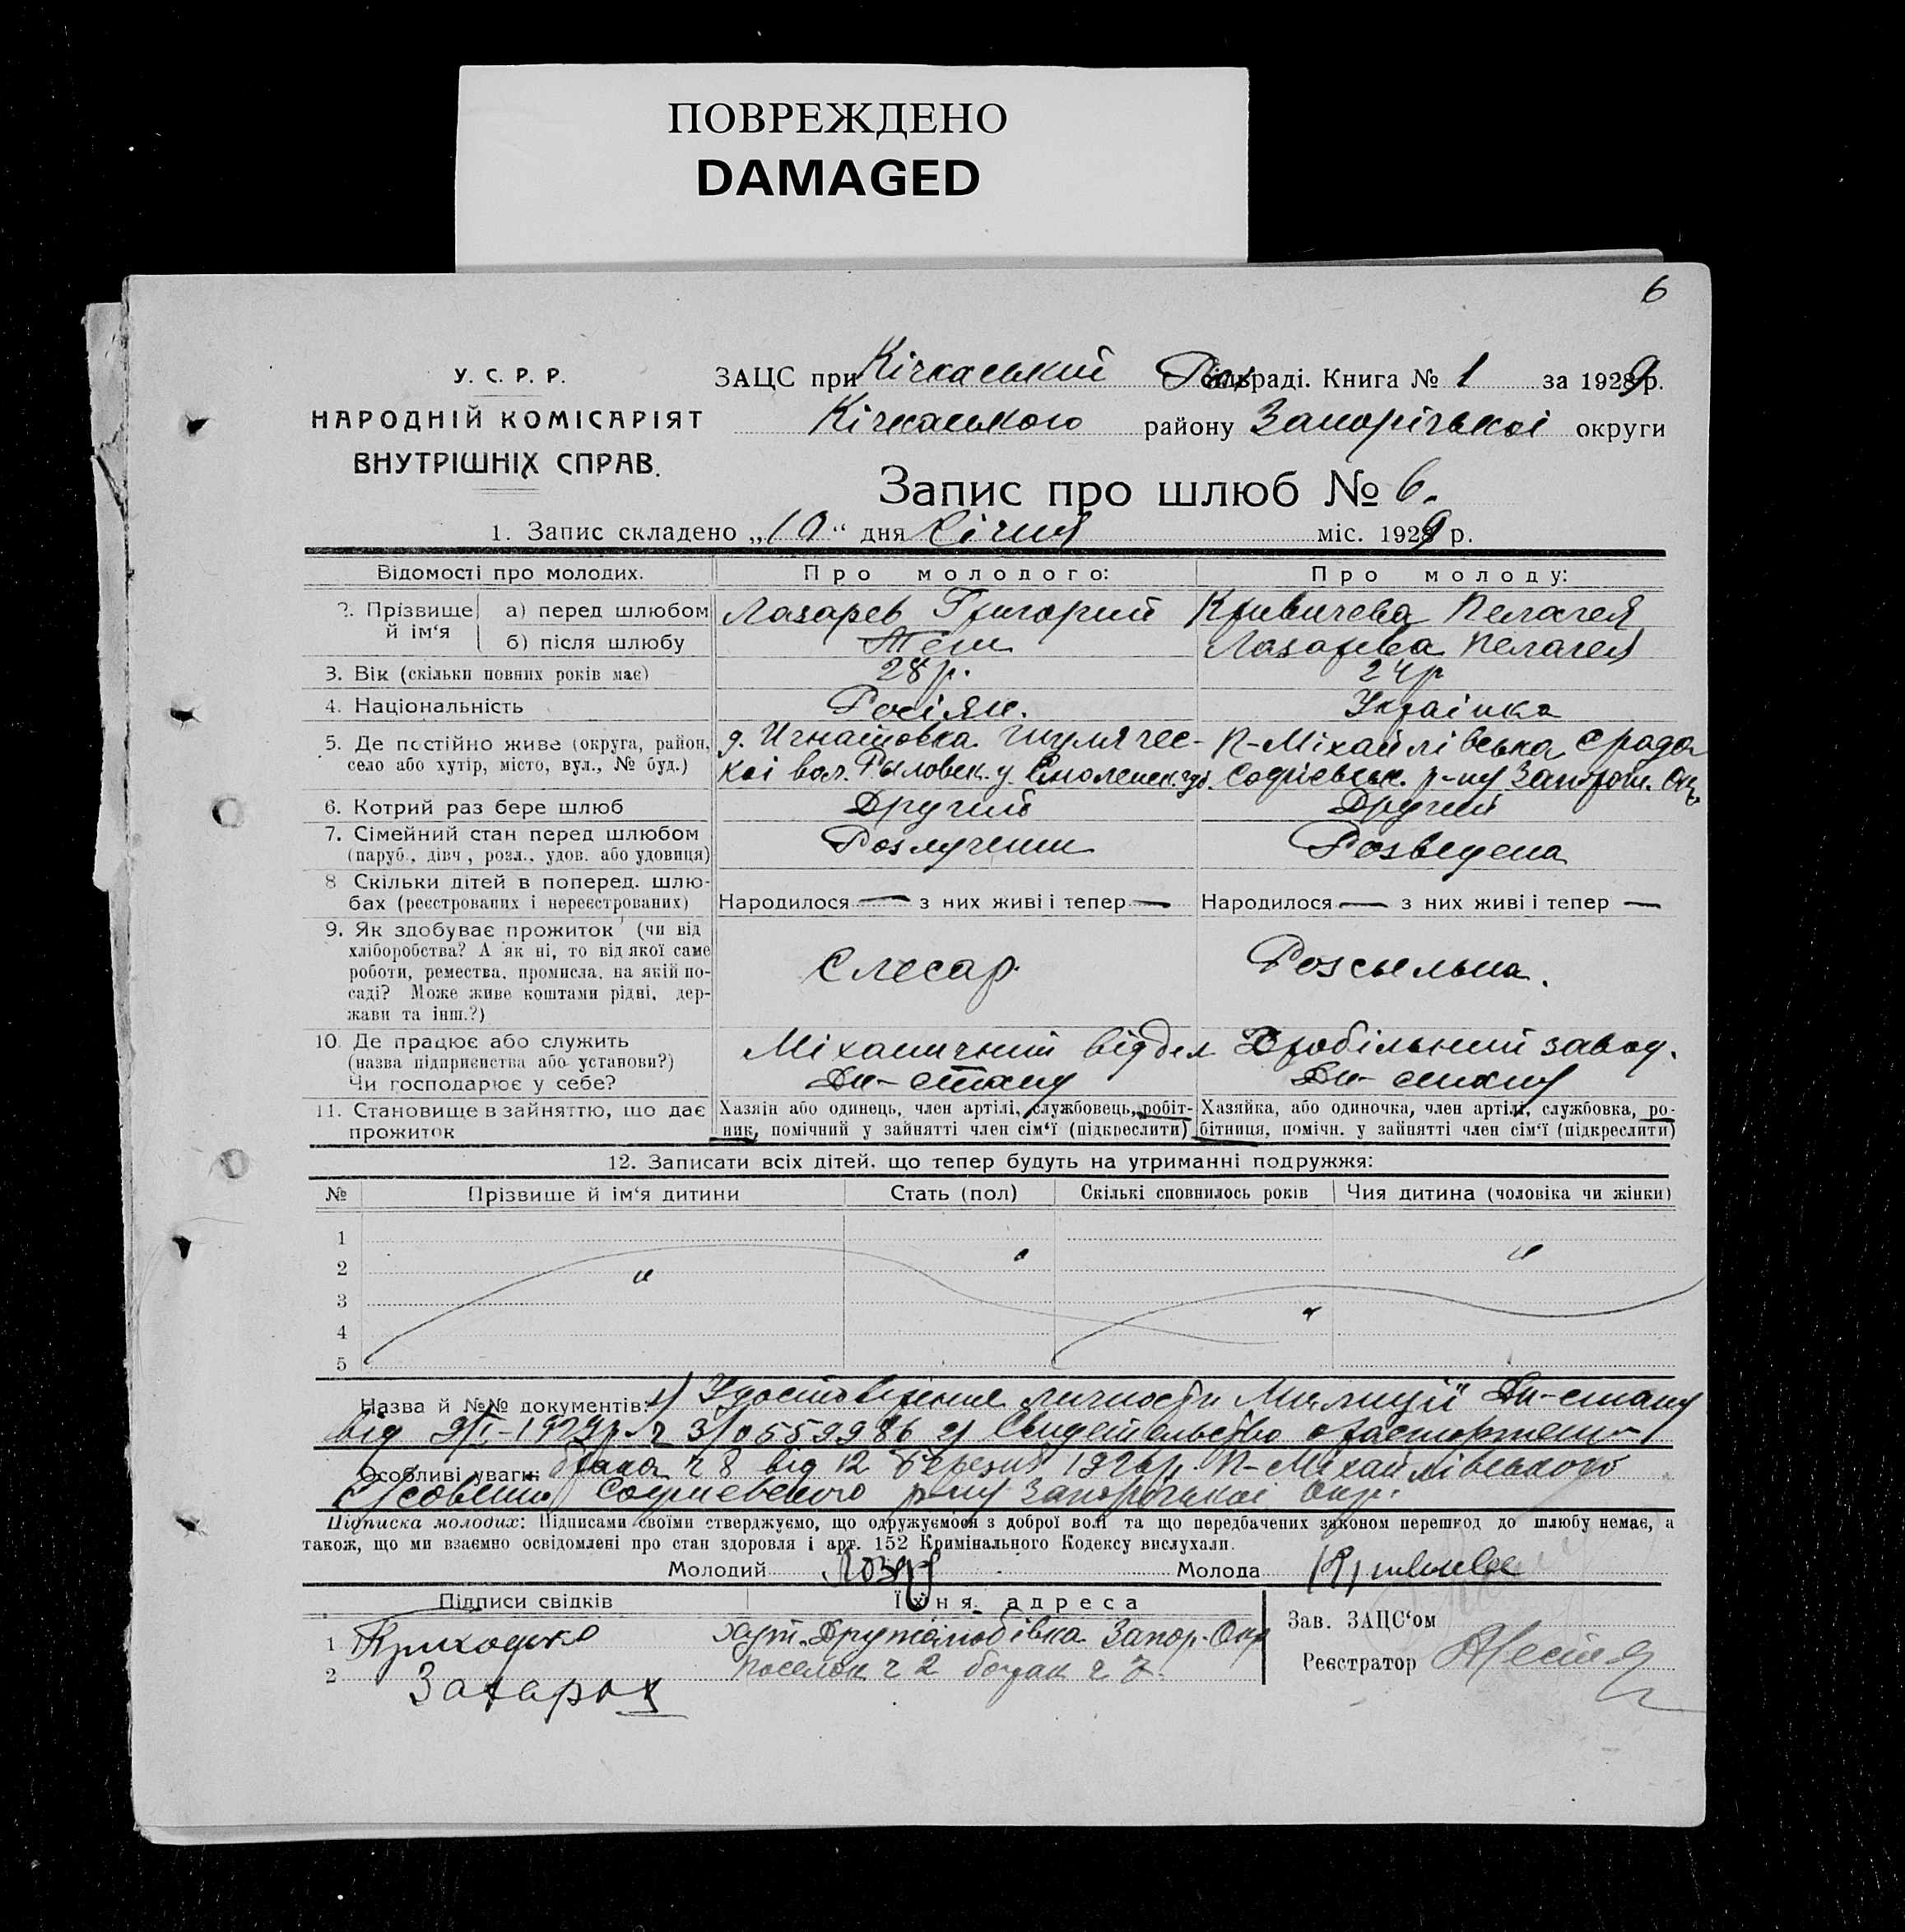 ПОВРЕЖДЕНО
DAMAGED
6
У. С. Р. Р.
НАРОДНІЙ КОМІСАРІЯТ
ВНУТРІШНІХ СПРАВ.
ЗАЦС при Кічкаський раді. Книга № 1 за 1929 р.
Кічкаського району Запорізької округи
Запис про шлюб № 6.
1. Запис складено „10“ дня Січня міс. 1929 р.
Відомості про молодих. Про молодого: Про молоду:
2. Прізвище й ім‘я а) перед шлюбом Лазарев Григорий Кривичева Пелагея
б) після шлюбу Теш Лазарева Пелагея
3. Вік (скільки повних років має) 28 р. 24 р
4. Національність Росіян. Українка
5. Де постійно живе (округа, район, д. Игнатовка П-Міхайлівська Срада
село або хутір, місто, вул., № буд.) кої вол. у. Смоленск. губ. Софіевськ. р-ну Запорож. Окр.
6. Котрий раз бере шлюб Другий Другий
7. Сімейний стан перед шлюбом Розлучени Розведена
(паруб., дівч., розл., удов. або удовиця)
8 Скільки дітей в поперед. шлю-
бах (реєстрованих і нереєстрованих) Народилося — з них живі і тепер — Народилося — з них живі і тепер —
9. Як здобуває прожиток (чи від
хліборобства? А як ні, то від якої саме
роботи, ремества, промисла, на якій по- Слесар. Розсыльна.
саді? Може живе коштами рідні, дер-
жави та інш.?)
10. Де працює або служить Міханичний віддел Дробільний завод.
(назва підприємства або установи?) Дн-стану Дн-стану
Чи господарює у себе?
11. Становище в зайняттю, що дає Хазяїн або одинець, член артілі, службовець, робіт- Хазяйка, або одиночка, член артілі, службовка, ро-
прожиток ник, помічний у зайнятті член сім‘ї (підкреслити) бітниця, помічн. у зайнятті член сім‘ї (підкреслити)
12. Записати всіх дітей, що тепер будуть на утриманні подружжя:
№ Прізвище й ім‘я дитини Стать (пол) Скількі сповнилось років Чия дитина (чоловіка чи жінки)
1
2
3
4
5
Назва й №№ документів: 1) Удостовірение личности Милиції Дн-стану
від 9/I-1929р ч 3/0559986 2) Свидетельство о расторжении
Особливі уваги: брака ч 8 від 12 Березня 192 р. П-Міхайлівського
Софиевского р-ну Запорізької Окр.
Підписка молодих: Підписами своїми стверджуємо, що одружуємося з доброї волі та що передбачених законом перешкод до шлюбу немає, а
також, що ми взаємно освідомлені про стан здоровля і арт. 152 Кримінального Кодексу вислухали.
Молодий Молода
Підписи свідків Їхня адреса Зав. ЗАЦС‘ом
1 Приходько хут. Запор. Окр
2 Захарох поселок ч 2 барак ч 7. Реєстратор